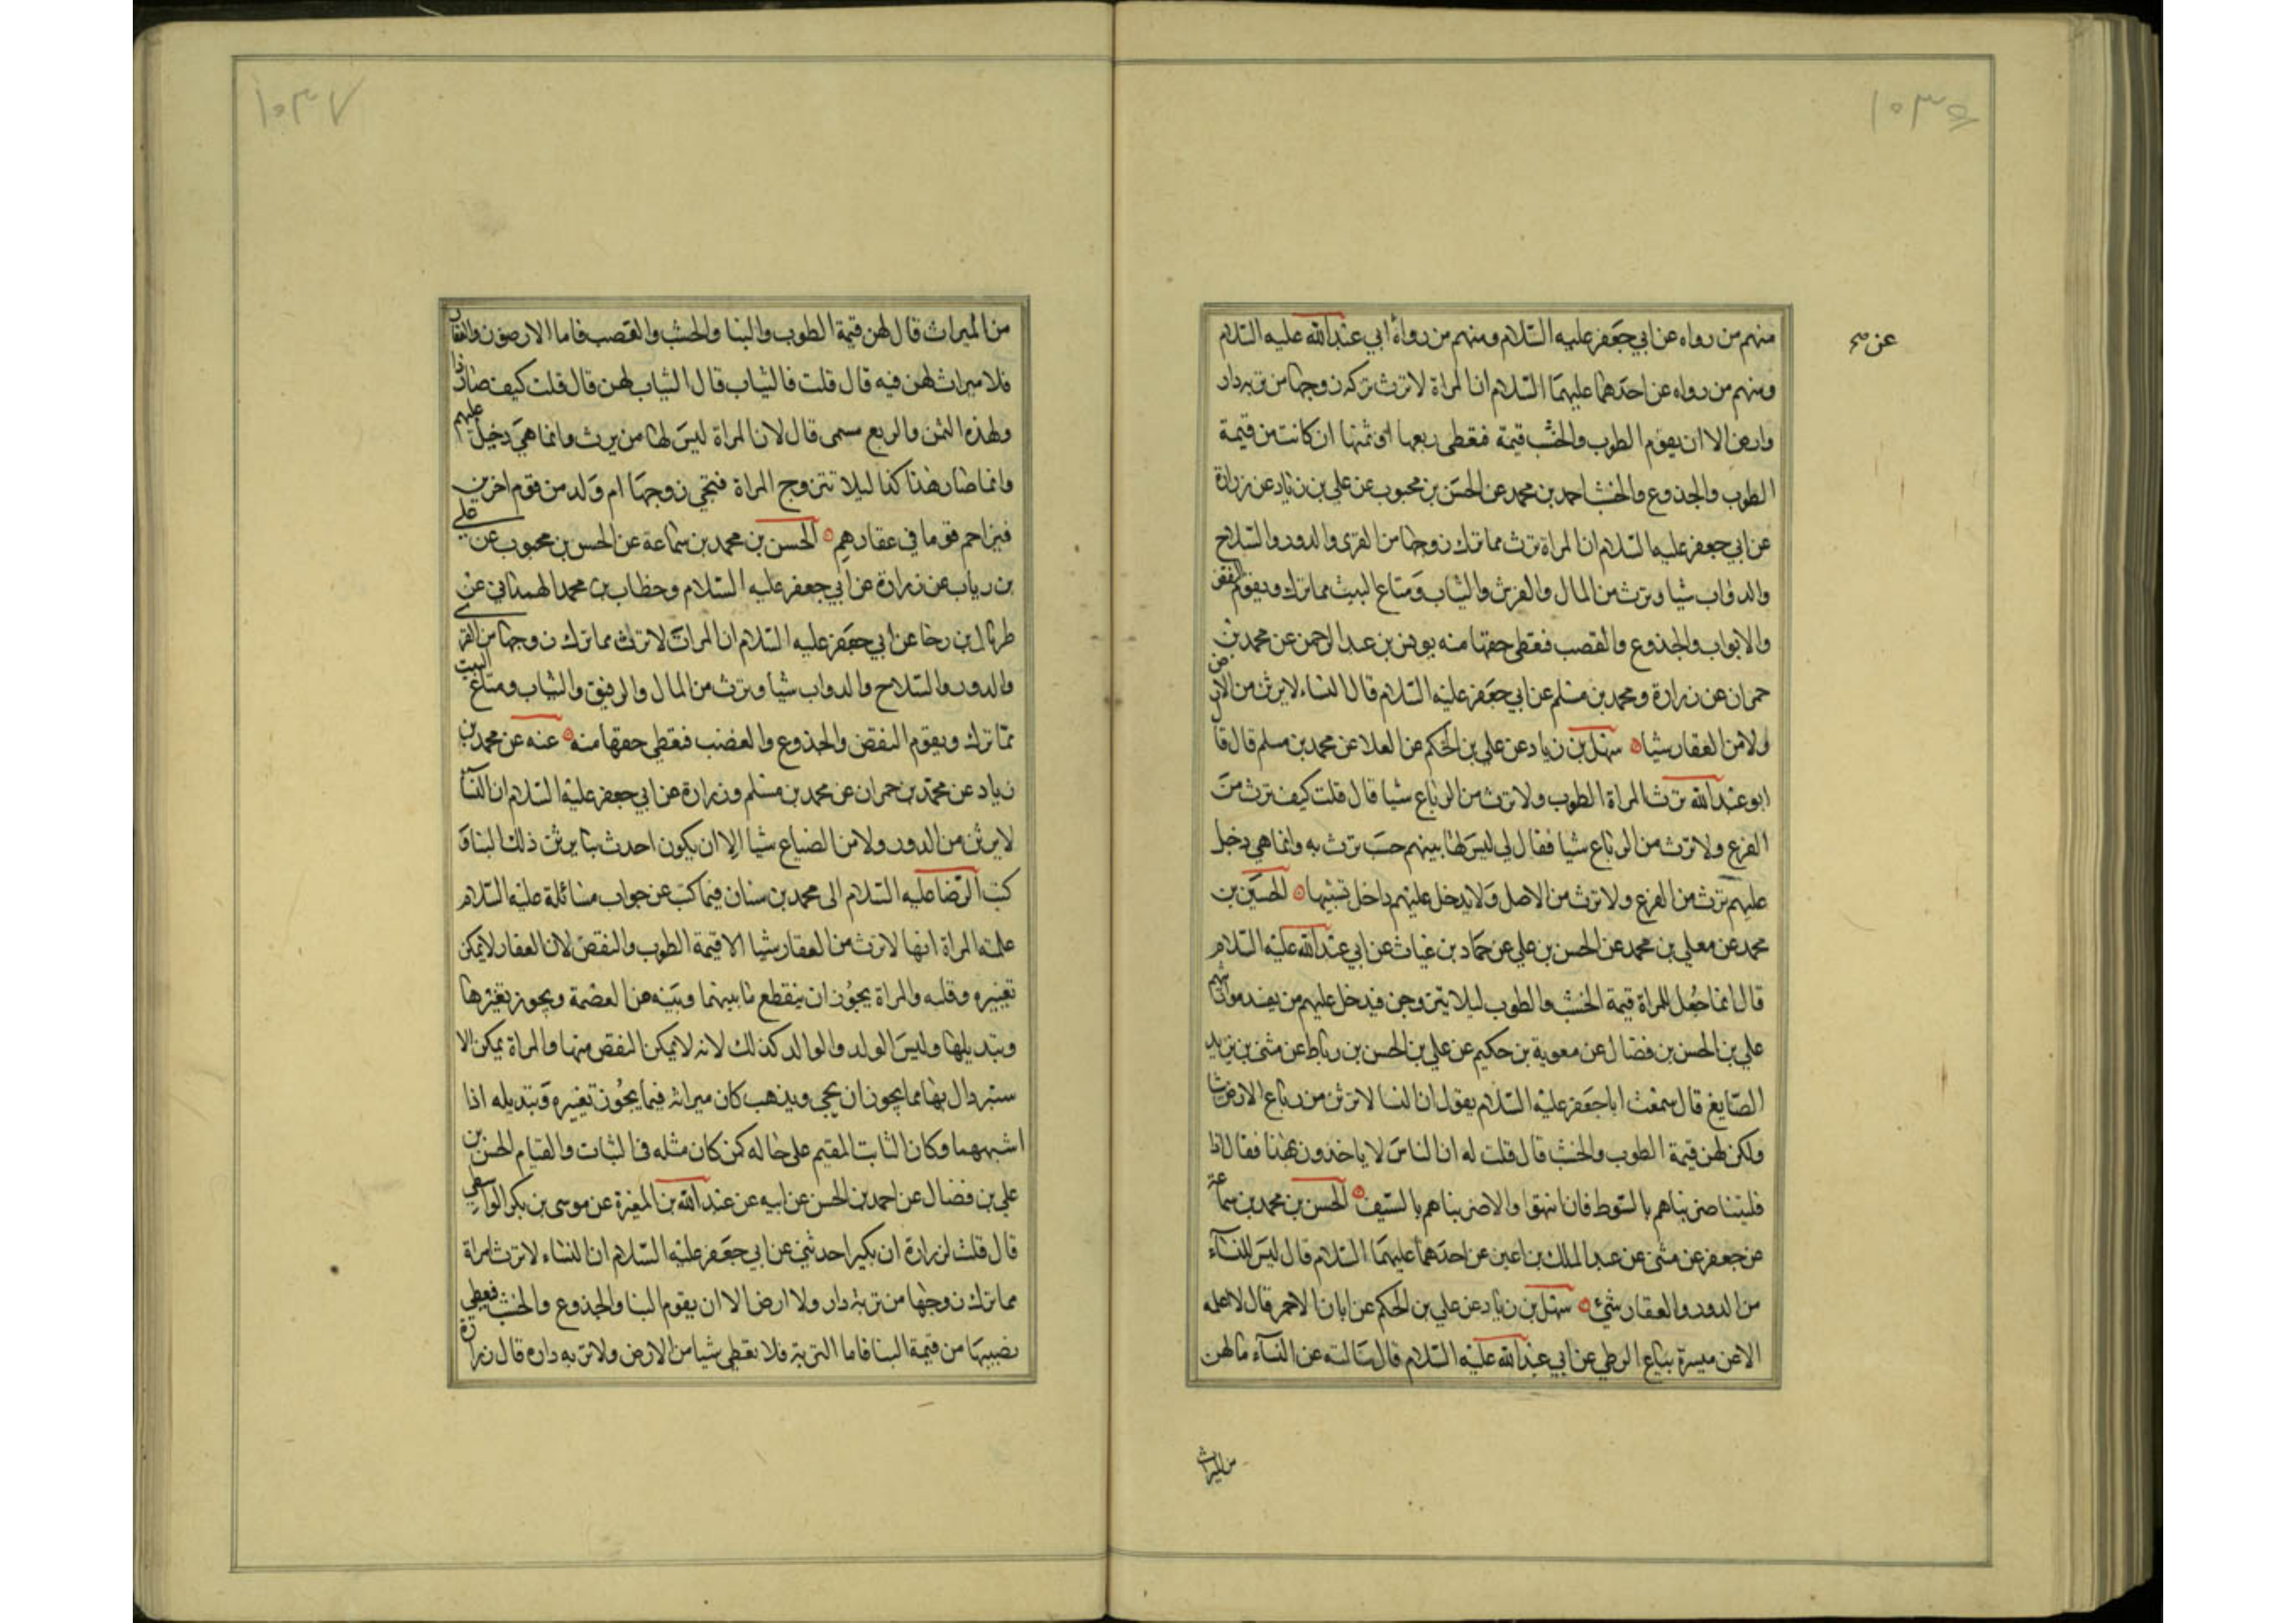 ١٠٣٥
عن صح
منهم من رواه عن ابي جعفر عليه السلام ومنهم من رواه ابي عبد الله عليه السلام
ومنهم من رواه عن احدهما عليهما السلام ان المراة لا ترث تركه زوجها من تربه دار
وارض الا ان يقوم الطوب والخشب قيمة فتعطى ربعها او ثمنها ان كانت من قيمة
الطوب والجذوع والخشب احمد بن محمد عن الحسن بن محبوب عن علي بن زياد عن زرارة
عن ابي جعفر عليه السلام ان المراة ترث مما ترك زوجها من القرى والدور والسلاح
والدواب شيا وترث من المال والفرش والثياب ومتاع البيت مما ترك ويقوم النقض
والابواب والجذوع والقصب فتعطى حقها منه يونس بن عبد الرحمن عن محمد بن
حمران عن زرارة ومحمد بن مسلم عن ابي جعفر عليه السلام قال النساء لا يرثن من الارض
ولا من العقار شيا سهل بن زياد عن علي بن الحكم عن العلا عن محمد بن مسلم قال قال
ابو عبد الله ترث المراة الطوب ولا ترث من الرباع شيا قال قلت كيف ترث من
الفرع ولا ترث من الرباع شيا فقال لي ليس لها بينهم حسب ترث به وانما هي دخيل
عليهم ترث من الفرع ولا ترث من الاصل ولا يدخل عليهم داخل بسببها الحسين بن
محمد عن معلى بن محمد عن الحسن بن علي عن حماد بن غياث عن ابي عبد الله عليه السلام
قال انما جعل للمراة قيمة الخشب والطوب ليلا يتزوجن فيدخل عليهم من يفسد مواريثهم
علي بن الحسن بن فضال عن معوية بن حكيم عن علي بن الحسن بن رباط عن مثنى بن يزيد
الصايغ قال سمعت ابا جعفر عليه السلام يقول ان النسا لا ترثن من رباع الارض شيا
ولكن لهن قيمة الطوب والخشب قال قلت له ان الناس لا ياخذون بهذا فقال اذا
فليتنا ضربناهم بالسوط فان انتهوا والا ضربناهم بالسيف الحسن بن محمد بن سماعة
عن جعفر عن مثنى عن عبد الملك بن اعين عن احدهما عليهما السلام قال ليس للنساء
من الدور والعقار شئ سهل بن زياد عن علي بن الحكم عن ابان الاحمر قال لا اعلمه
الا عن ميسرة بياع الزطي عن ابي عبد الله عليه السلام قال سالته عن النساء ما لهن
من الميراث
١٠٣٧
من الميراث قال لهن قيمة الطوب والبنا والخشب والقصب فاما الارضون والعقار
فلا ميراث لهن فيه قال قلت فالثياب قال الثياب لهن قال قلت كيف صار ذا
ولهذه الثمن والربع مسمى قال لان المراة ليس لها من يرث وانما هي دخيل عليهم
وانما صار هذا كذا ليلا تتزوج المراة فتجي زوجها ام ولد من قوم اخرين
فيزاحم قوما في عقارهم الحسن بن محمد بن سماعة عن الحسن بن محبوب عن علي
بن رياب عن زرارة عن ابي جعفر عليه السلام وخطاب بن محمد الهمداني عن
طربال بن رجا عن ابي جعفر عليه السلام ان المرات لا ترث مما ترك زوجها من القرى
والدور والسلاح والدواب شيا وترث من المال والرقيق والثياب ومتاع البيت
مما ترك ويقوم النقض والجذوع والقصب فتعطى حقها منه عنه عن محمد بن
زياد عن محمد بن حمران عن محمد بن مسلم وزرارة عن ابي جعفر عليه السلام ان النسا
لا يرثن من الدور ولا من الضياع شيا الا ان يكون احدث بنا يرثن ذلك البنا
كتب الرضا عليه السلام الى محمد بن سنان فيما كتب عن جواب مسائلة عليه السلام
علته المراة انها لا ترث من العقار شيا الا قيمة الطوب والنقض لان العقار لا يمكن
تغييره وقلبه والمراة يجوز ان ينقطع ما بينهما وبينه من العصمة ويجوز تغيرها
وتبديلها وليس الولد والوالد كذلك لانه لا يمكن النقص منها والمراة يمكن الا
ستبدال بها مما يجوز ان يجي ويذهب كان ميراثه فيما يجوز تغييره وتبديله اذا
اشبههما وكان الثابت المقيم على حاله كمن كان مثله في الثبات والقيام الحسن بن
علي بن فضال عن احمد بن الحسن عن ابيه عن عبد الله بن المغيرة عن موسى بن بكر الواسطي
قال قلت لزرارة ان بكيرا حدثني عن ابي جعفر عليه السلام ان النساء لا ترث امراة
مما ترك زوجها من تربة دار ولا ارض الا ان يقوم البنا والجذوع والخشب فتعطى
نصيبها من قيمة البنا فاما التربة فلا تعطى شيا من الارض ولا تربه داره قال زرارة